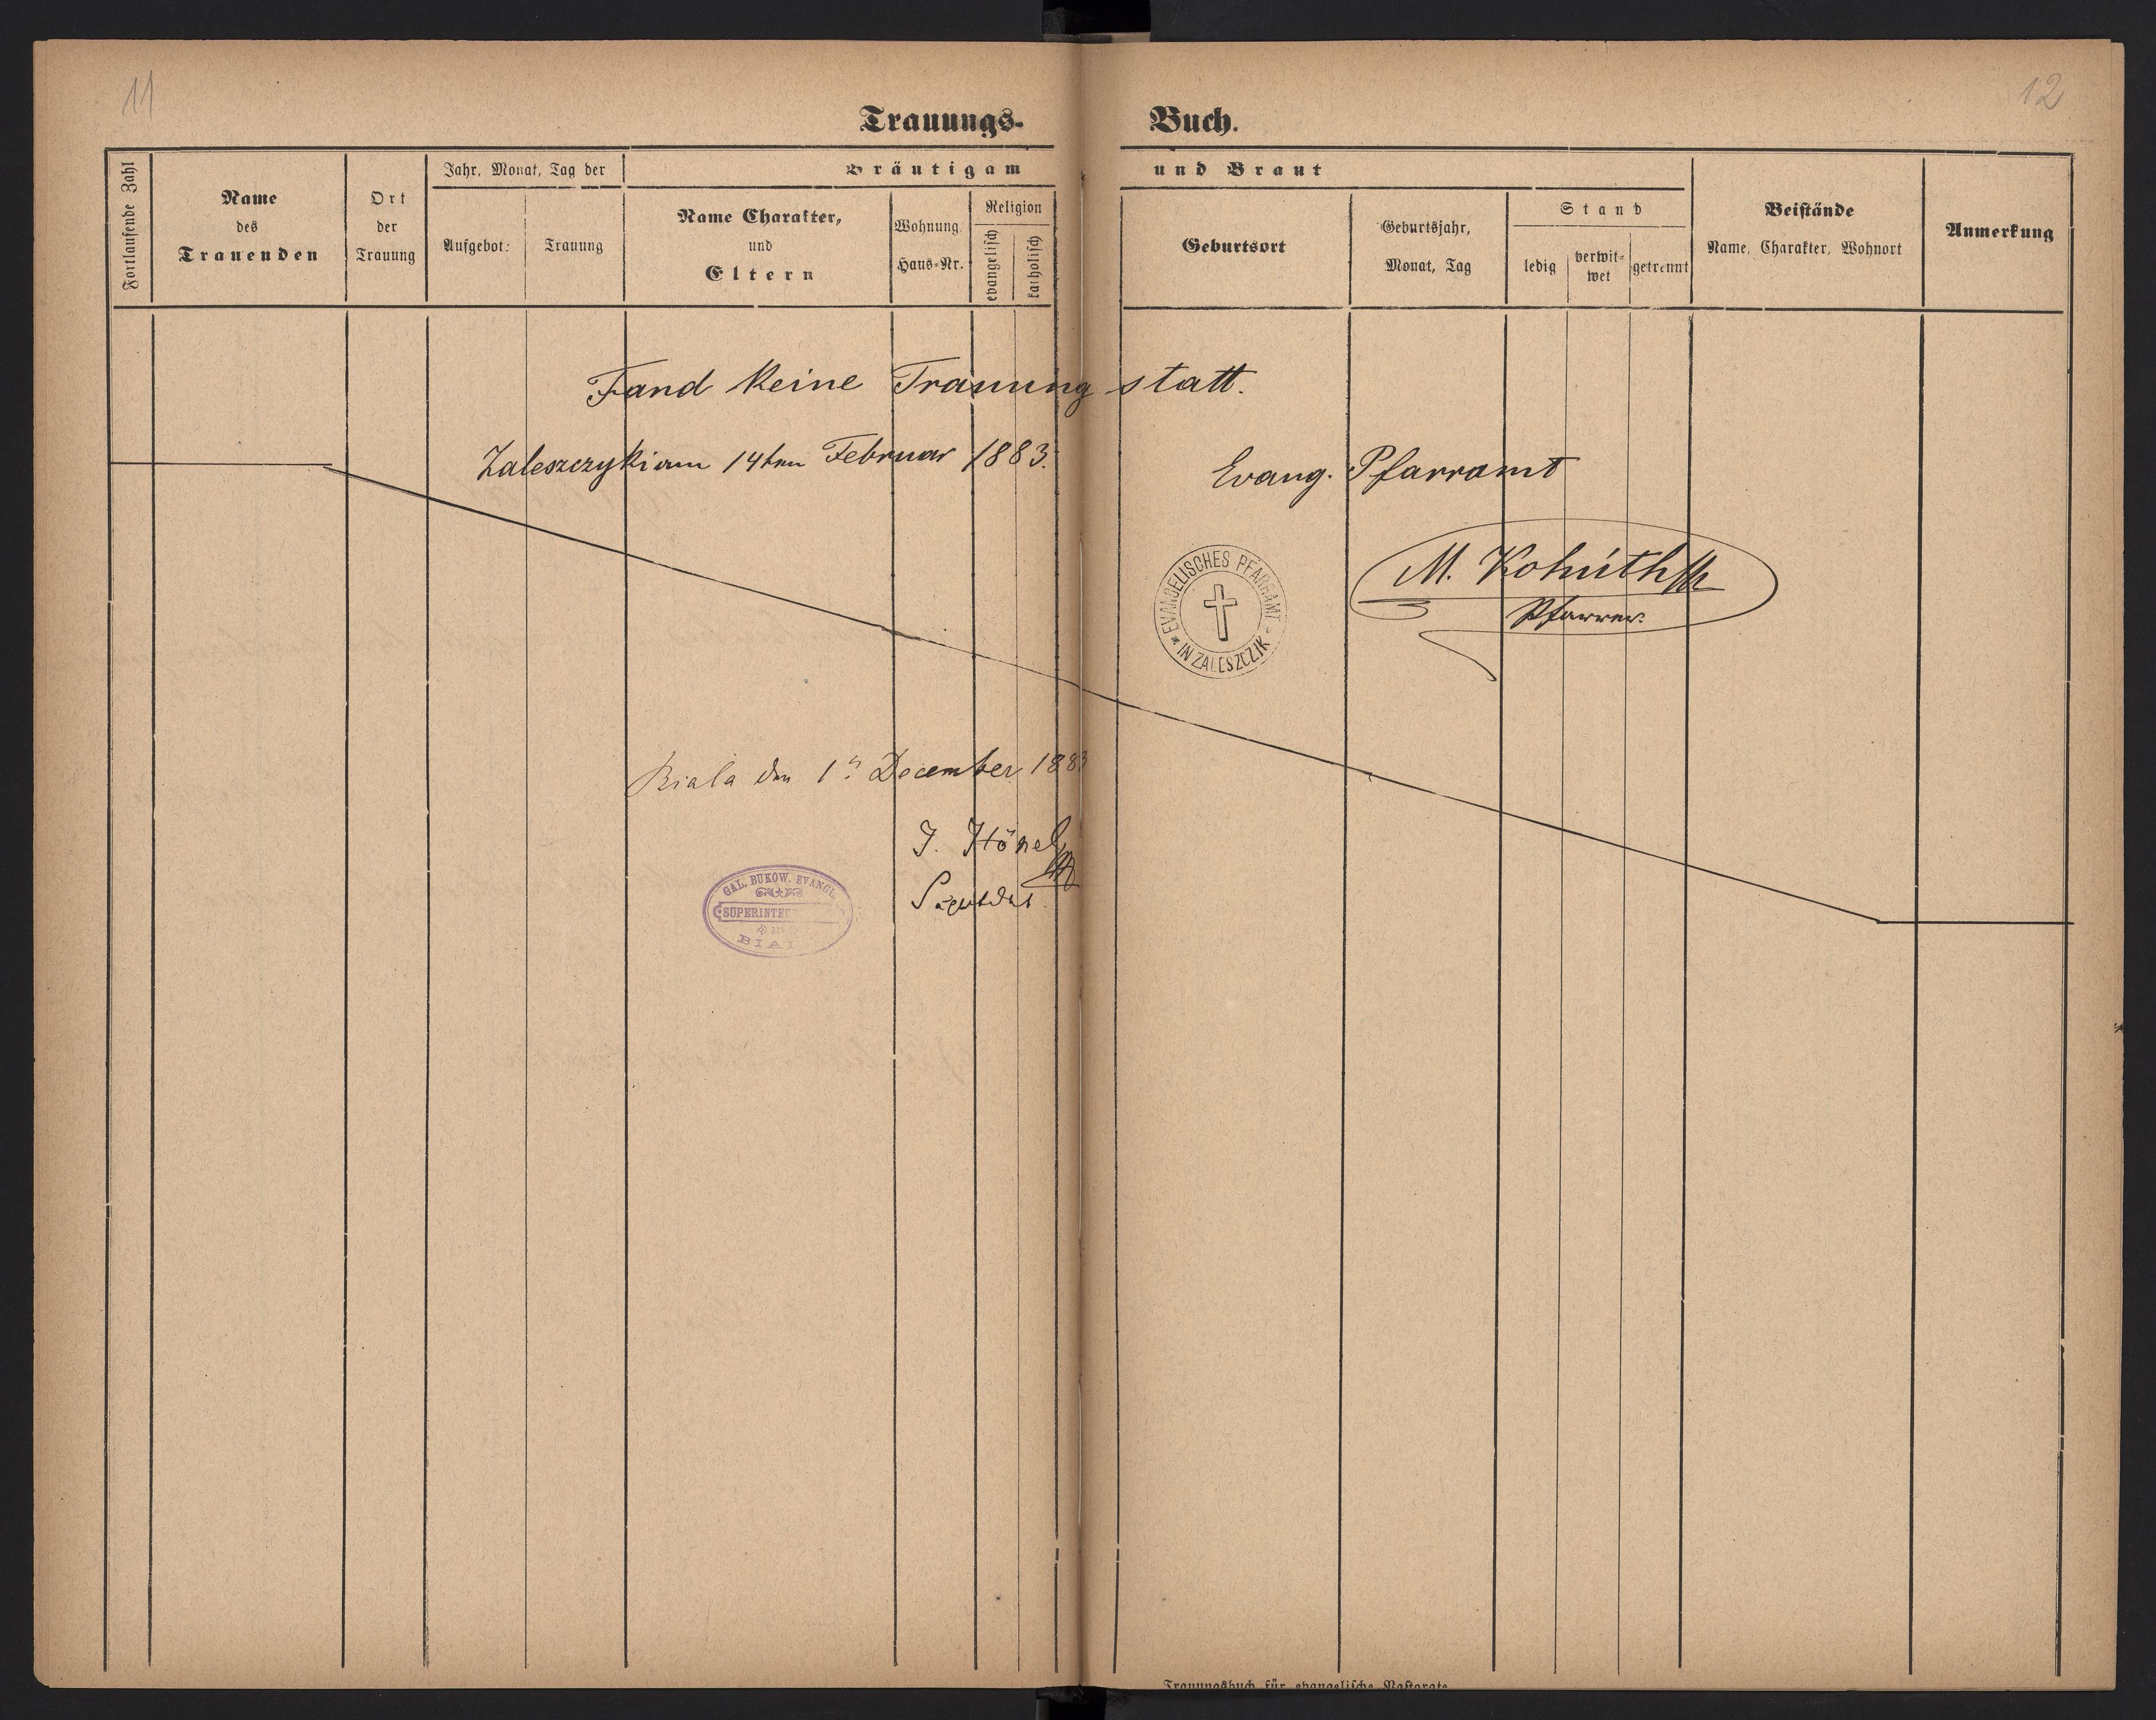 11
12
Trauungs- Buch.
Fortlaufende Zahl
Name
des
Trauenden
Ort
der
Trauung
Jahr, Monat, Tag der
Aufgebot:
Trauung
Bräutigam und Braut
Name Charakter,
und
Eltern
Wohnung
Haus-Nr.
Religion
evangelisch
katholisch
Geburtsort
Geburtsjahr,
Monat, Tag
Stand
ledig
verwit-
wet
getrennt
Beistände
Name, Charakter, Wohnort
Anmerkung
Fand keine Trauung statt.
Zaleszczyki am 14ten Februar 1883.
Evang. Pfarramt
M. Kohúth
Pfarrer.
EVANGELISCHES PFARRAMT
IN ZALESZCZIK
Biala den 1 December 1883
J. Hönel
GAL. BUKOW. EVANGL.
SUPERINTE
BIAL
Trauungsbuch für evangelische Pastorate